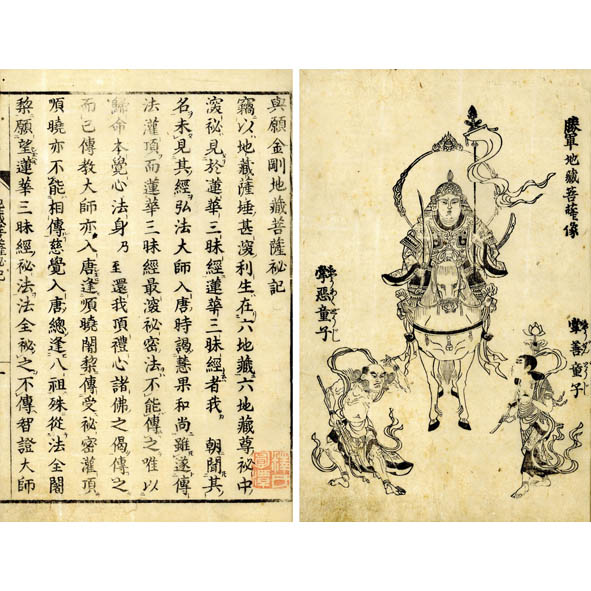 勝軍地藏菩薩像
掌善童子
掌惡童子
與願金剛地藏菩薩祕記
竊以地藏薩埵甚深利生在六地藏六地藏尊祕中
深祕見於蓮華三昧經蓮華三昧經者我 朝聞其
名未見其經弘法大師入唐時謁惠果和尚雖遂傳
法灌頂而蓮華三昧經最深祕密法不能傳之唯以
歸命本覺心法身乃至還我頂禮心諸佛之偈傳之
而已傳教大師亦入唐逢順曉闍黎傳受祕密灌頂
順曉亦不能相傳慈覺入唐總逢八祖殊從法全闍
黎願望蓮華三昧經祕法法全祕之不傳智證大師